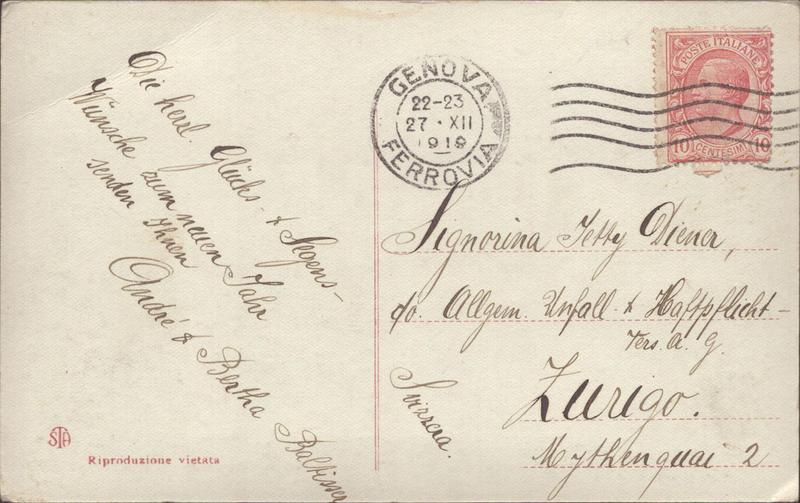 Die herzl. Glücks- & Segens-
Wünsche zum neuen Jahr
senden Ihnen
André & Bertha
STA
Riproduzione vietata
GENOVA
22-23
27 · XII
1919
FERROVIA
POSTE ITALIANE
10 CENTESIMI 10
Signorina Jetty Diener,
c/o. Allgem. Unfall- & Haftpflicht-
Vers. A. G.
Zurigo.
Mythenquai 2
Svizzera.